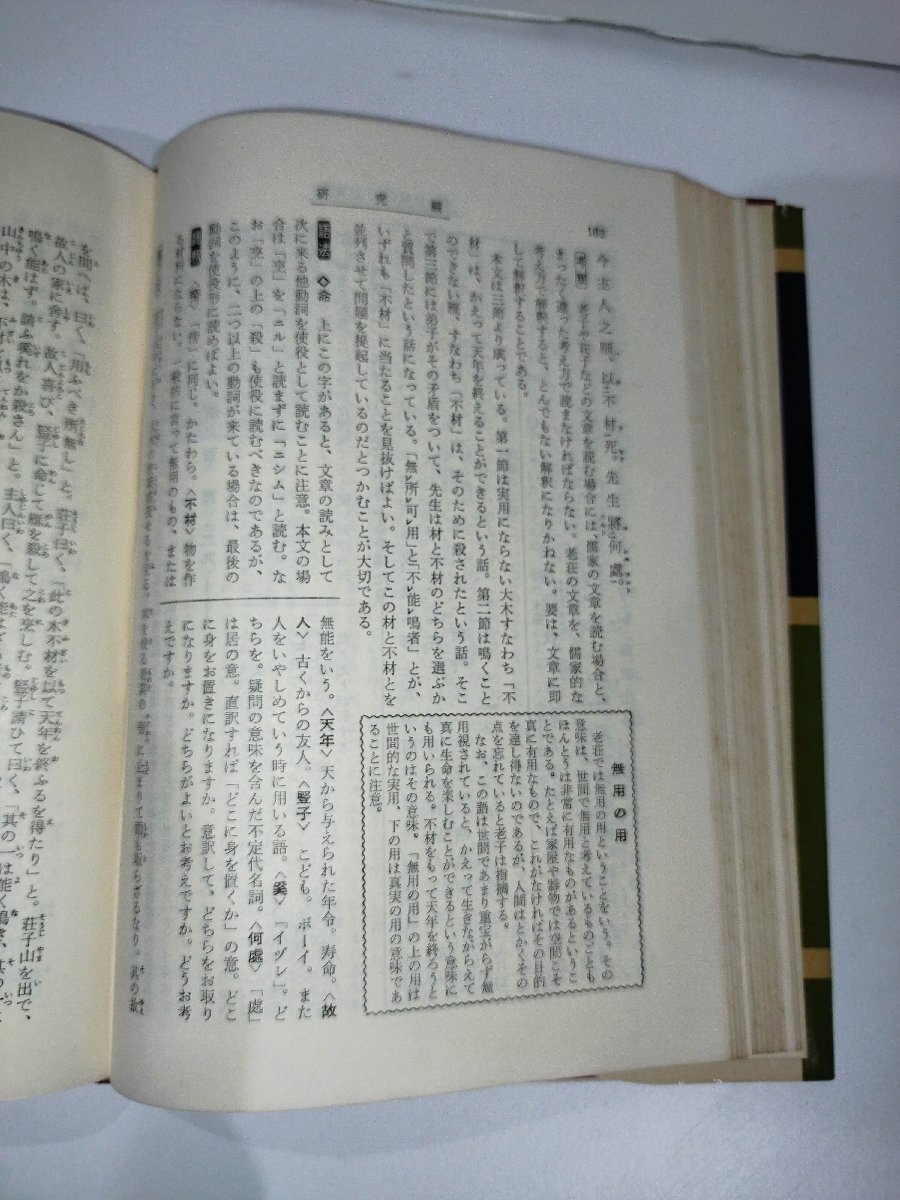 研究編
162
今主人之雁、以不材死。先生將何處。
考察 老子や荘子などの文章を読む場合には、儒家の文章を読む場合と、
まったく違った考え方で読まなければならない。老荘の文章を、儒家的な
考え方で解釈すると、とんでもない解釈になりかねない。要は、文章に即
して解釈することである。
本文は三節より成っている。第一節は実用にならない大木すなわち「不
材」は、かえって天年を終えることができるという話。第二節は鳴くこと
のできない雁、すなわち「不材」は、そのために殺されたという話。そこ
で第三節には弟子がその矛盾をついて、先生は材と不材のどちらを選ぶか
と質問したという話になっている。「無所可用」と「不能鳴者」とが、
いずれも「不材」に当たることを見抜けばよい。そしてこの材と不材とを
並列させて問題を提起しているのだとつかむことが大切である。
無用の用
老荘では無用の用ということをいう。その
意味は、世間で無用と考えているものこそ
ほんとうは非常に有用なものがあるというこ
とである。たとえば家屋や器物では空間こそ
真に有用なもので、これがなければその目的
を達し得ないのであるが、人間はとかくその
点を忘れていると老子は指摘する。
なお、この語は世間であまり重宝がらず無
用視されていると、かえって生きながらえて
真に生命を楽しむことができるという意味に
も用いられる。不材をもって天年を終ろうと
いうのはその意味。「無用の用」の上の用は
世間的な実用、下の用は真実の用の意味であ
ることに注意。
語法 ◇命 上にこの字があると、文章の読みとして
次に来る他動詞を使役として読むことに注意。本文の場
合は「烹」を「ニル」と読まずに「ニシム」と読む。な
お「烹」の上の「殺」も使役に読むべきなのであるが、
このように、二つ以上の動詞が来ている場合は、最後の
動詞を使役形に読めばよい。
に同じ。かたわら。〈不材〉物を作
る材料にならない。一般的に言って無用のもの、または
無能をいう。〈天年〉天から与えられた年令。寿命。〈故
人〉古くからの友人。〈豎子〉こども。ボーイ。また
人をいやしめていう時に用いる語。〈奚〉「イヅレ」。ど
ちらを。疑問の意味を含んだ不定代名詞。〈何處〉「處」
は居の意。直訳すれば「どこに身を置くか」の意。どこ
に身をお置きになりますか。意訳して、どちらをお取り
になりますか。どちらがよいとお考えですか。どうお考
えですか。
を問へば、曰く、「用ふべき所無し」と。荘子曰く、「此の木不材を以て天年を終ふるを得たり」と。荘子山を出で、
故人の家に舎す。故人喜び、豎子に命じて雁を殺して之を烹しむ。豎子請ひて曰く、「其の一は能く鳴き、其の一
鳴く能はず。請ふ奚れをか殺さん」と。主人曰く、
山中の木は、不材